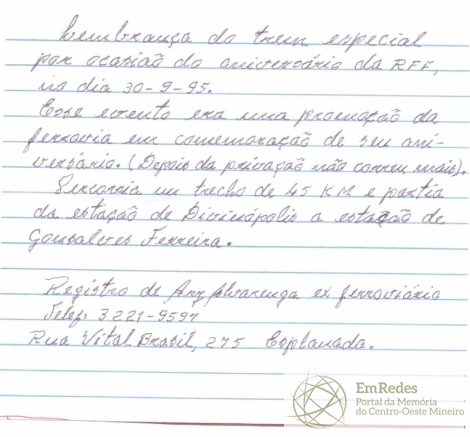 Lembrança do trem especial
por ocasião do aniversário da RFF,
no dia 30-9-95.
Esse evento era uma promoção da
ferrovia em comemoração de seu ani-
versário. (Depois da privação não correu mais).
Percorria um trecho de 45 KM e partia
da estação de Divinópolis a estação de
Gonsalves Ferreira.
Registro de Any Alvarenga ex ferroviário
Telef. 3221-9597
Rua Vital Brasil, 275 Esplanada.
EmRedes
Portal da Memória
do Centro-Oeste Mineiro